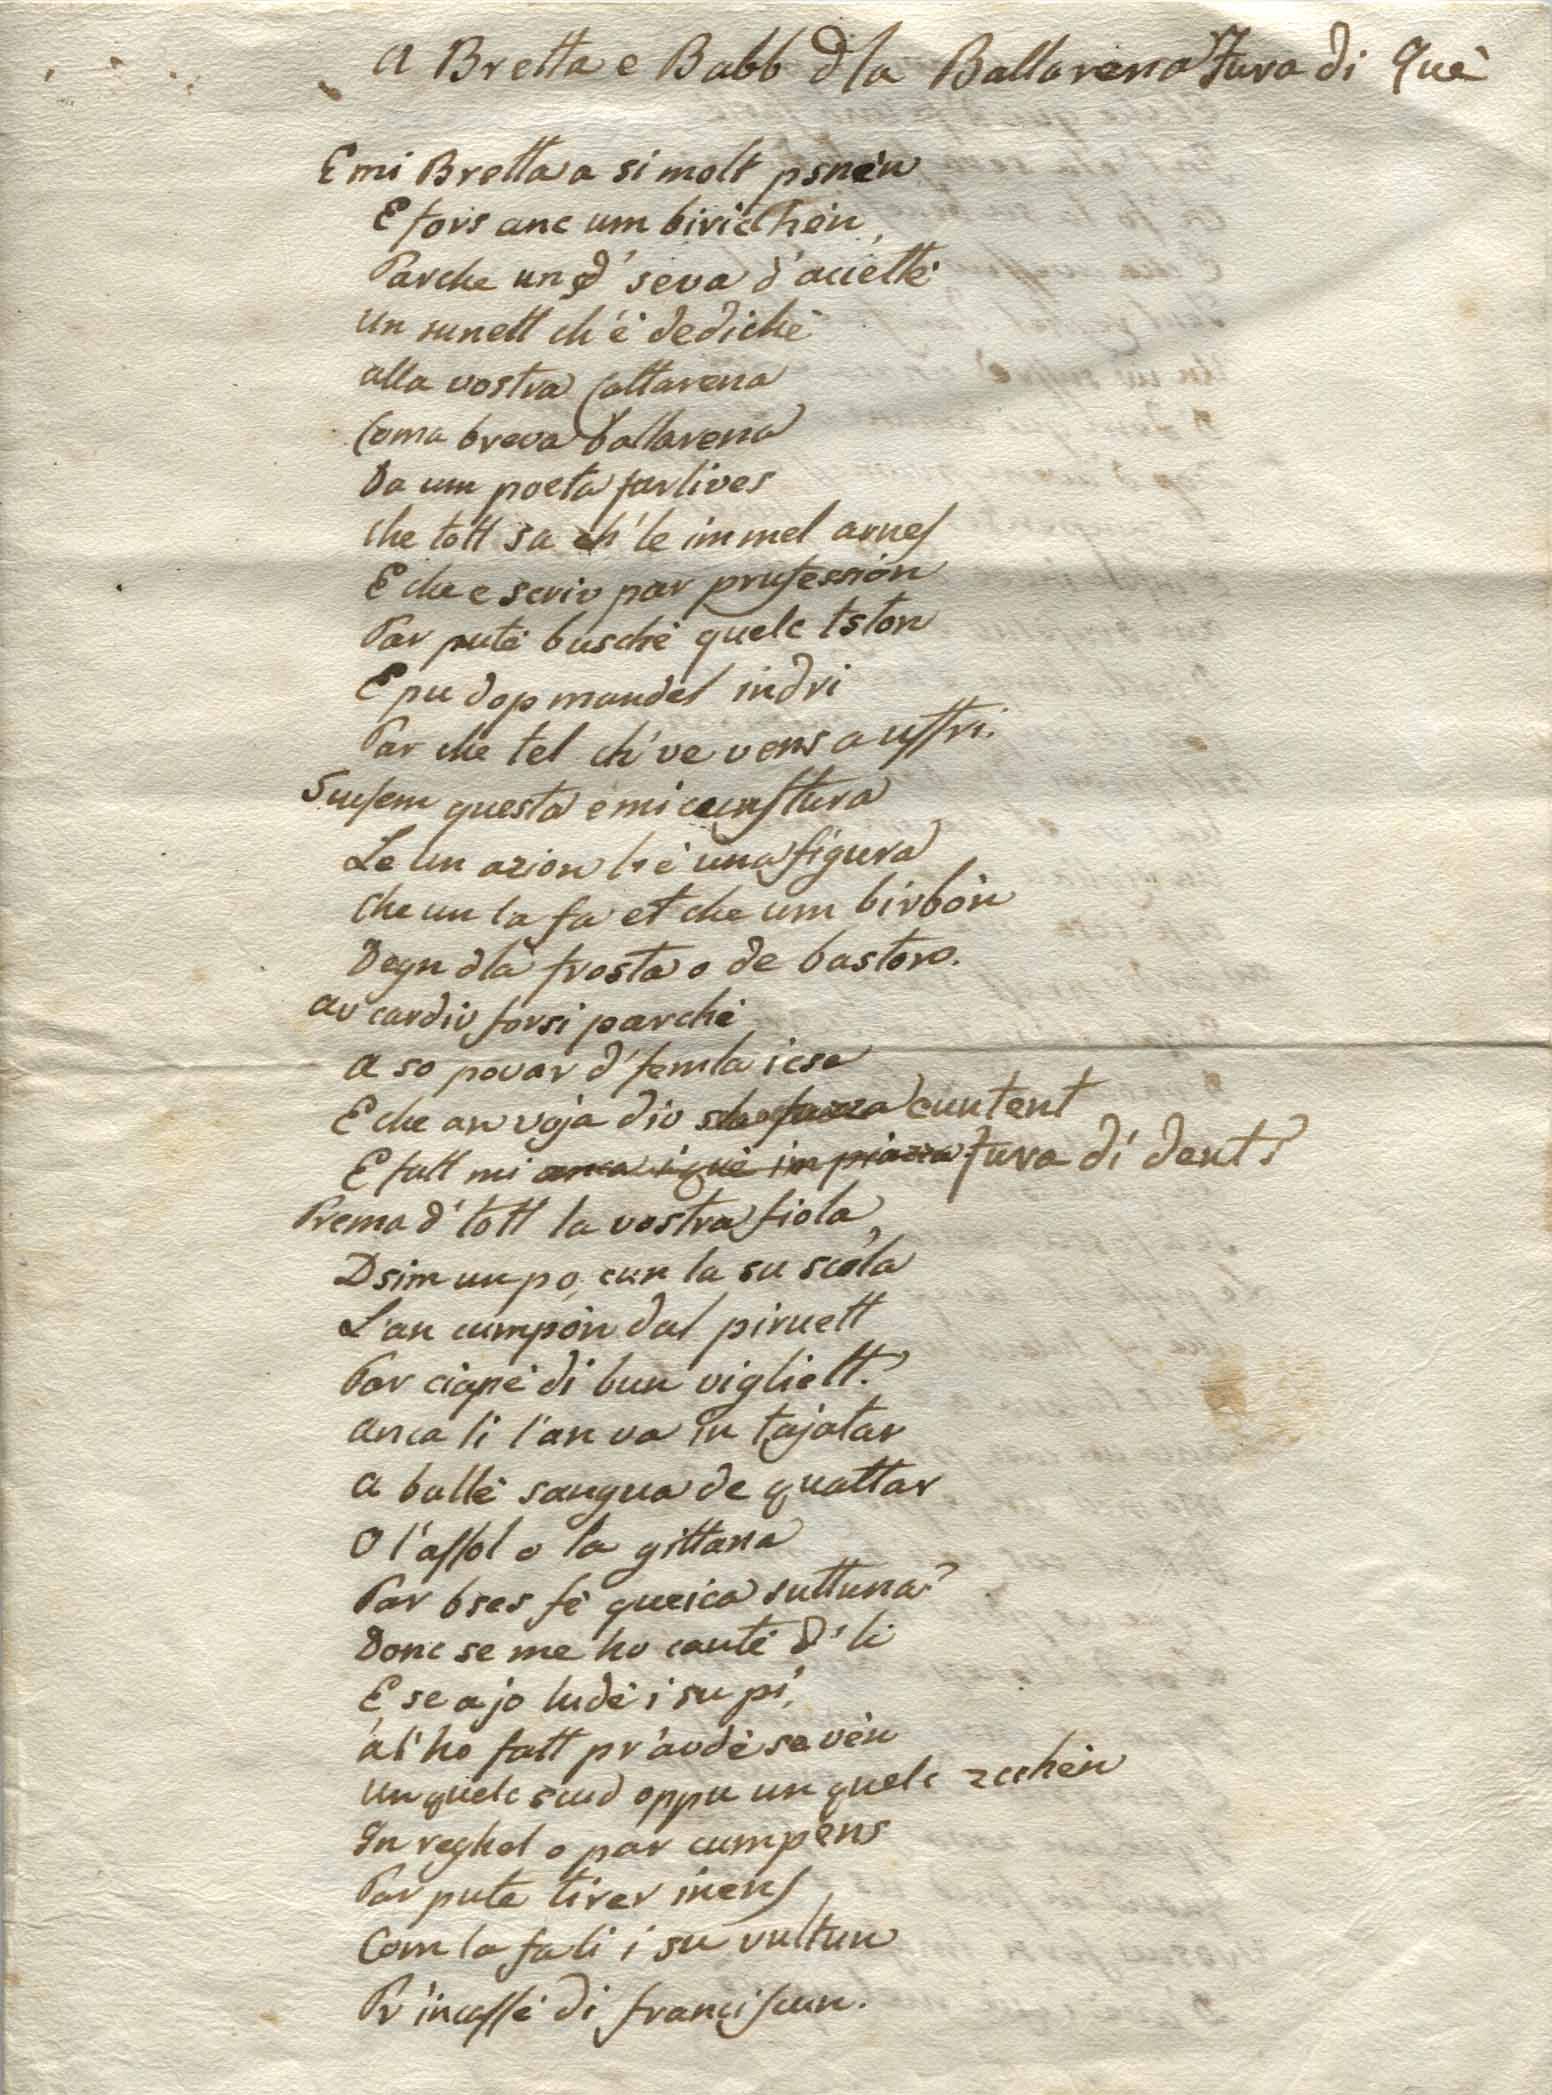 A Bretta e Babb dla Ballarena Fura di Què
E mi Bretta a si molt psnèn
E fors anc um birichèn,
Parche un d' seva d'aciettè
Un sunett ch'è dedichè
alla vostra Cattarena
Coma breva ballarena
Da um poeta furlives
che tott sa ch'le im mel arnes
E che e scriv par prufessiòn
Par putè buschè quelc tston
E pu dop mandel indri
Par che tel ch've vens a uffri.
Scusem questa e mi caunstura
Le un azion l'è una figura
che un la fa et che um birbòn
Degn dla frosta o de baston.
av cardiv forsi parchè
A so povar d'femla icse
E che an voja div sla fazza cuntent
E fatt mi anca iquè im piazza fura di dent?
Prema d'tott la vostra fiola
Dsim un po, cun la su scòla
L'an cumpòn dal piruett
Par ciapè di bun vigliett?
Anca li l'an va in tajatar
A ballè sangua de quattar
O l'assol o la gittana
Par bses fè queica suttana?
Donc se me ho cantè d'li
E se a jo ludè i su pi,
a l'ho fatt pr'avdè se vèn
Un quelc scud oppu un quelc zcchèn
In reghel o par cumpèns
Par pute tirer inens,
Com la fa li i su vultun
Pr'incassè di franciscun.